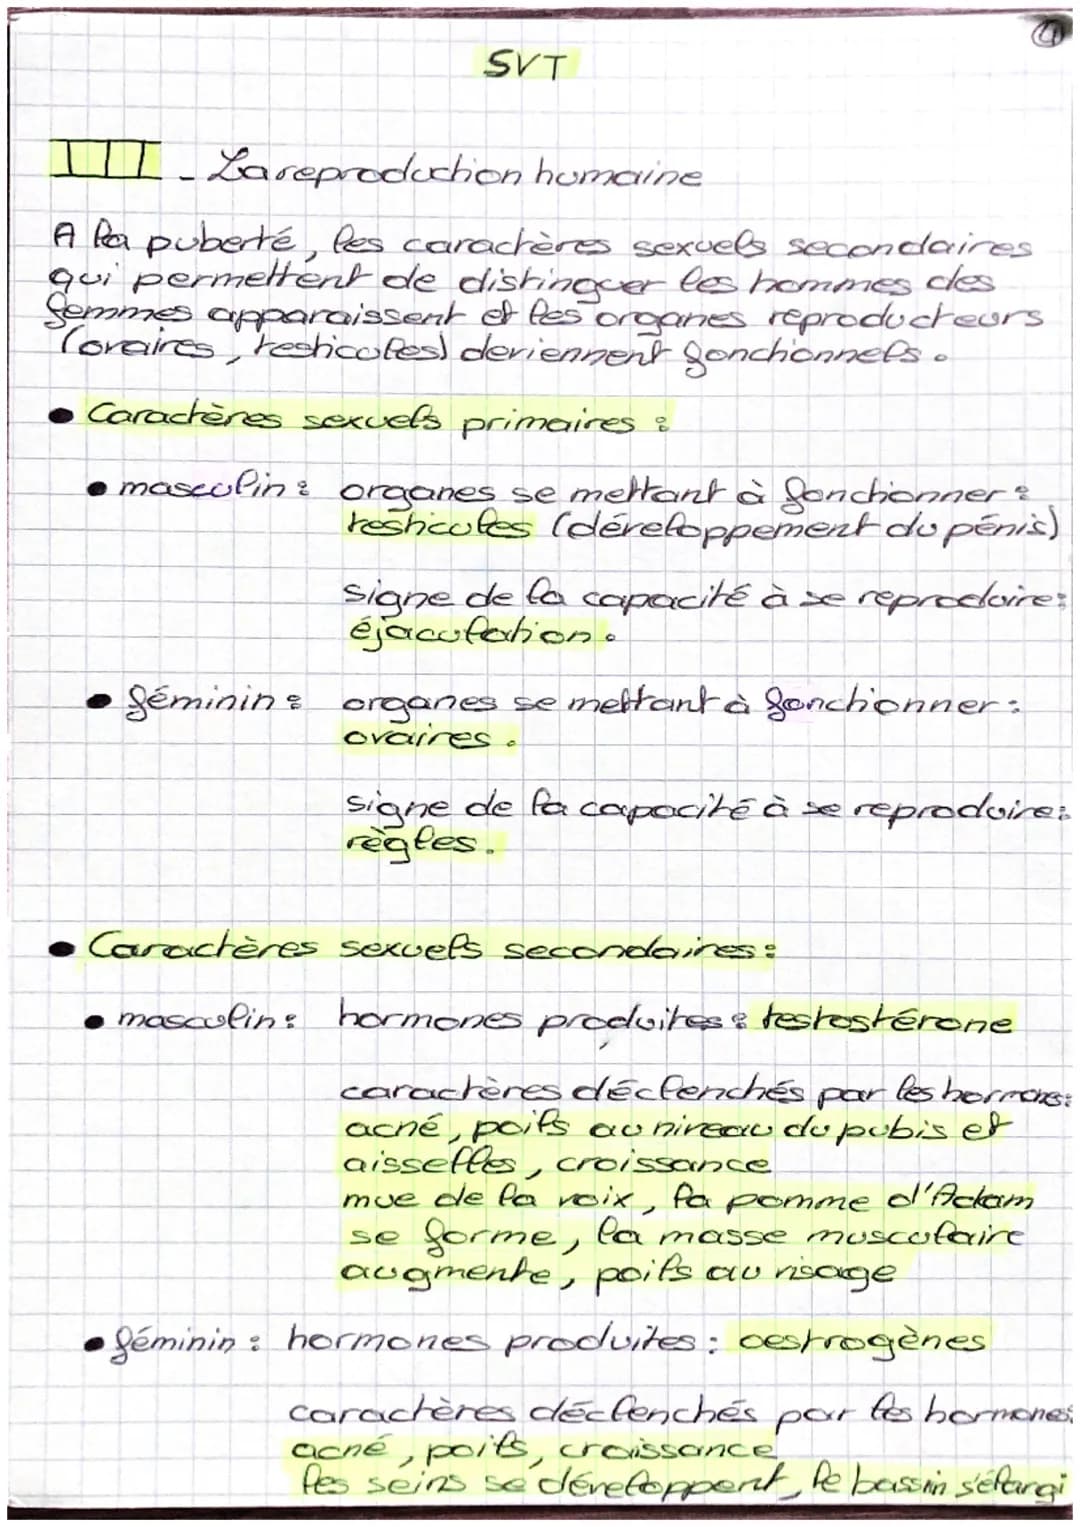 SVT
III - La reproduction humaine
A la puberté, les caractères sexuels secondaires
qui permettent de distinguer les hommes des
femmes apparaissent et les organes reproducteurs
(ovaires, testicules) deviennent fonctionnels.
• Caractères sexuels primaires :
• masculin : organes se mettant à fonctionner :
testicules (développement du pénis)
signe de la capacité à se reproduire :
éjaculation.
• féminin : organes se mettant à fonctionner :
ovaires.
signe de la capacité à se reproduire :
règles.
• Caractères sexuels secondaires :
• masculin : hormones produites : testostérone
caractères déclenchés par les hormones :
acné, poils au niveau du pubis et
aisselles, croissance
mue de la voix, la pomme d'Adam
se forme, la masse musculaire
augmente, poils au visage
• féminin : hormones produites : oestrogènes
caractères déclenchés par les hormones :
acné, poils, croissance
les seins se développent, le bassin s'élargi